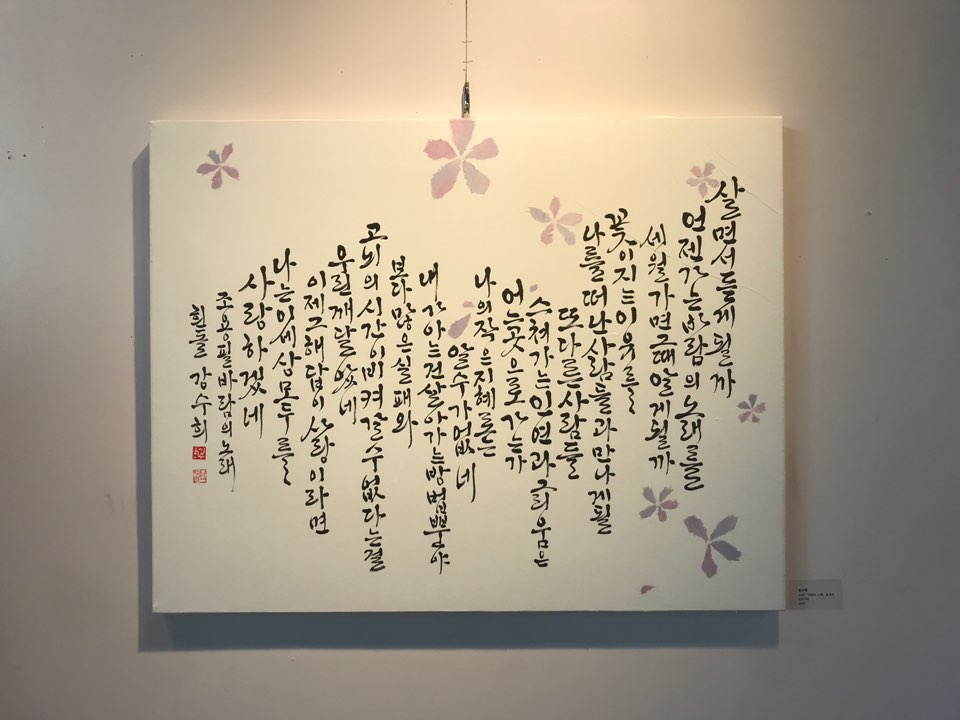 살면서 듣게 될까
언젠가는 바람의 노래를
세월가면 그때 알게 될까
꽃이 지는 이유를
나를 떠난 사람들과 만나게 될
또 다른 사람들
스쳐가는 인연과 그리움은
어느 곳으로 가는가
나의 작은 지혜로는
알 수가 없네
내가 아는 건 살아가는 방법뿐야
보다 많은 실패와
고뇌의 시간이 비켜갈 수 없다는 걸
우린 깨달았네
이제 그 해답이 사랑이라면
나는 이 세상 모두를
사랑하겠네
조용필 바람의 노래
흰돌 강수희